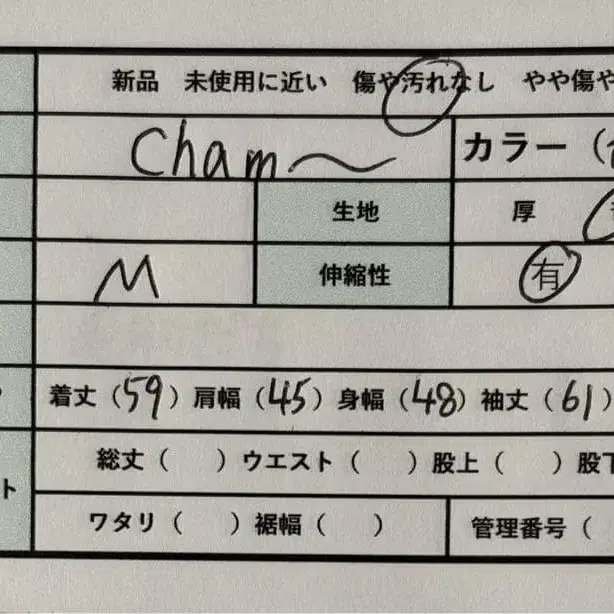 新品 未使用に近い 傷や汚れなし やや傷や
Cham〜 カラー（
生地 厚
M 伸縮性 有
着丈（59）肩幅（45）身幅（48）袖丈（61）
総丈（ ）ウエスト（ ）股上（ ）股下
ト
ワタリ（ ）裾幅（ ） 管理番号（